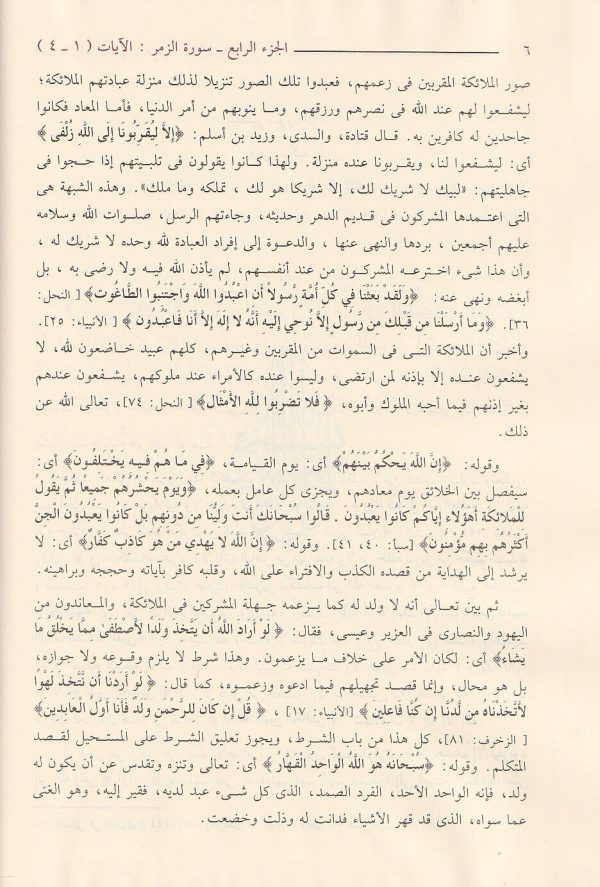 ٦ الجزء الرابع ـ سورة الزمر : الآيات ( ١ ـ ٤ )
صور الملائكة المقربين فى زعمهم، فعبدوا تلك الصور تنزيلا لذلك منزلة عبادتهم الملائكة؛
ليشفعوا لهم عند الله فى نصرهم ورزقهم، وما ينوبهم من أمر الدنيا، فأما المعاد فكانوا
جاحدين له كافرين به. قال قتادة، والسدى، وزيد بن أسلم: ﴿إِلاَّ لِيُقَرِّبُونَا إِلَى اللَّهِ زُلْفَى ﴾
أى: ليشفعوا لنا، ويقربونا عنده منزلة. ولهذا كانوا يقولون فى تلبيتهم إذا حجوا فى
جاهليتهم: «لبيك لا شريك لك، إلا شريكا هو لك ، تملكه وما ملك». وهذه الشبهة هى
التى اعتمدها المشركون فى قديم الدهر وحديثه، وجاءتهم الرسل، صلوات الله وسلامه
عليهم أجمعين ، بردها والنهى عنها ، والدعوة إلى إفراد العبادة لله وحده لا شريك له ،
وأن هذا شىء اخترعه المشركون من عند أنفسهم، لم يأذن الله فيه ولا رضى به ، بل
أبغضه ونهى عنه: ﴿وَلَقَدْ بَعَثْنَا فِي كُلِّ أُمَّةٍ رَّسُولاً أَنِ اعْبُدُوا اللَّهَ وَاجْتَنِبُوا الطَّاغُوتَ﴾ [ النحل:
٣٦]. ﴿وَمَا أَرْسَلْنَا مِن قَبْلِكَ مِن رَّسُولٍ إِلاَّ نُوحِي إِلَيْهِ أَنَّهُ لا إِلَهَ إِلاَّ أَنَا فَاعْبُدُونِ ﴾ [ الأنبياء: ٢٥].
وأخبر أن الملائكة التى فى السموات من المقربين وغيرهم، كلهم عبيد خاضعون لله، لا
يشفعون عنده إلا بإذنه لمن ارتضى، وليسوا عنده كالأمراء عند ملوكهم، يشفعون عندهم
بغير إذنهم فيما أحبه الملوك وأبوه، ﴿ فَلا تَضْرِبُوا لِلَّهِ الأَمْثَالَ﴾ [ النحل: ٧٤]، تعالى الله عن
ذلك.
وقوله: ﴿إِنَّ اللَّهَ يَحْكُمُ بَيْنَهُمْ﴾ أى: يوم القيامة، ﴿فِي مَا هُمْ فِيهِ يَخْتَلِفُونَ﴾ أى:
سيفصل بين الخلائق يوم معادهم، ويجزى كل عامل بعمله، ﴿وَيَوْمَ يَحْشُرُهُمْ جَمِيعًا ثُمَّ يَقُولُ
لِلْمَلائِكَةِ أَهَؤُلاءِ إِيَّاكُمْ كَانُوا يَعْبُدُونَ . قَالُوا سُبْحَانَكَ أَنتَ وَلِيُّنَا مِن دُونِهِم بَلْ كَانُوا يَعْبُدُونَ الْجِنَّ
أَكْثَرُهُم بِهِم مُّؤْمِنُونَ﴾ [سبأ: ٤٠، ٤١]. وقوله: ﴿ إِنَّ اللَّهَ لا يَهْدِي مَنْ هُوَ كَاذِبٌ كَفَّارٌ﴾ أى: لا
يرشد إلى الهداية من قصده الكذب والافتراء على الله، وقلبه كافر بآياته وحججه وبراهينه.
ثم بين تعالى أنه لا ولد له كما يزعمه جهلة المشركين فى الملائكة، والمعاندون من
اليهود والنصارى فى العزير وعيسى، فقال: ﴿ لَوْ أَرَادَ اللَّهُ أَن يَتَّخِذَ وَلَدًا لاَّصْطَفَىٰ مِمَّا يَخْلُقُ مَا
يَشَاءُ﴾ أى: لكان الأمر على خلاف ما يزعمون. وهذا شرط لا يلزم وقوعه ولا جوازه،
بل هو محال، وإنما قصد تجهيلهم فيما ادعوه وزعموه، كما قال: ﴿ لَوْ أَرَدْنَا أَن نَّتَّخِذَ لَهْوًا
لاَّتَّخَذْنَاهُ مِن لَّدُنَّا إِن كُنَّا فَاعِلِينَ ﴾ [الأنبياء: ١٧] ، ﴿ قُلْ إِن كَانَ لِلرَّحْمَنِ وَلَدٌ فَأَنَا أَوَّلُ الْعَابِدِينَ﴾
[ الزخرف: ٨١]، كل هذا من باب الشرط، ويجوز تعليق الشرط على المستحيل لقصد
المتكلم. وقوله: ﴿سُبْحَانَهُ هُوَ اللَّهُ الْوَاحِدُ الْقَهَّارُ ﴾ أى: تعالى وتنزه وتقدس عن أن يكون له
ولد، فإنه الواحد الأحد، الفرد الصمد، الذى كل شىء عبد لديه، فقير إليه، وهو الغنى
عما سواه، الذى قد قهر الأشياء فدانت له وذلت وخضعت.